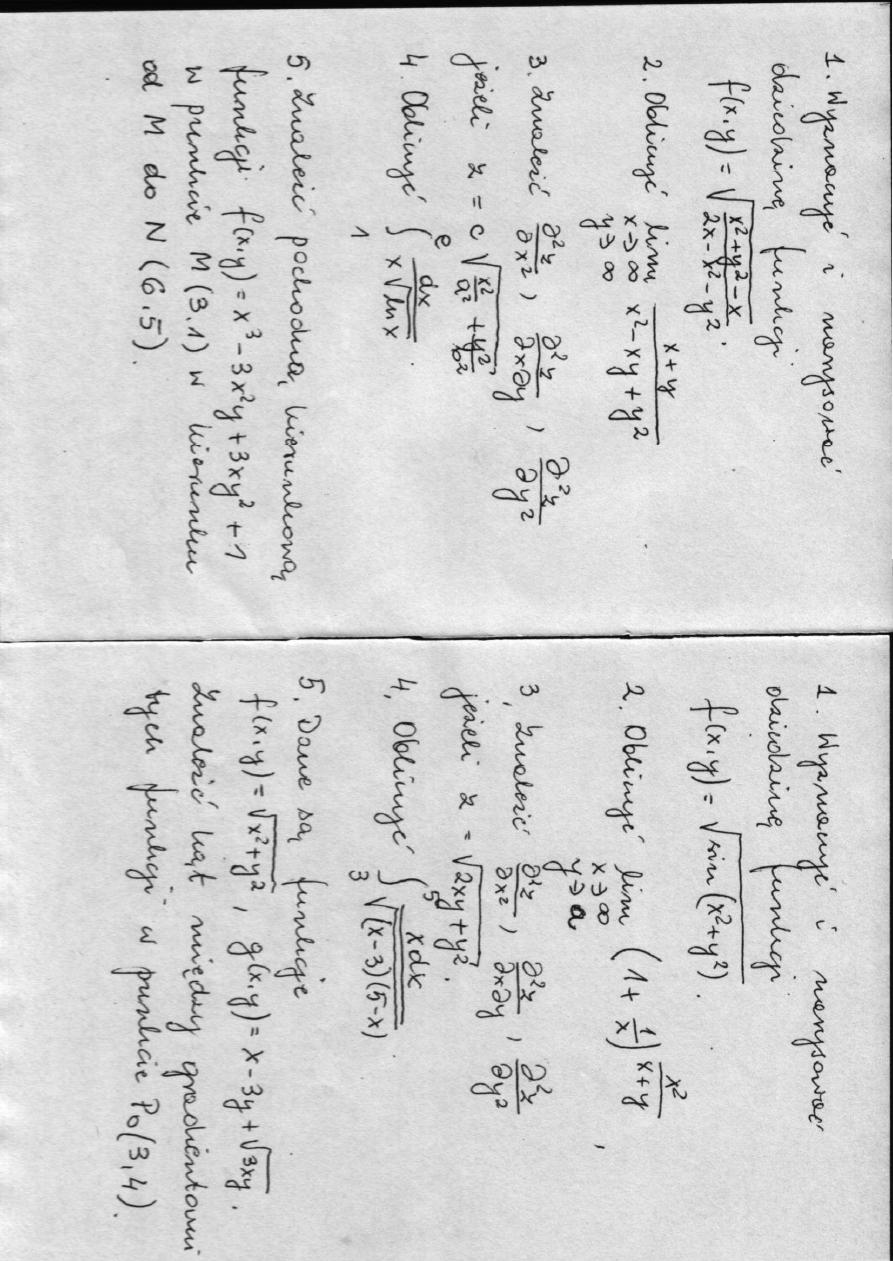 1. Wyznaczyć i narysować
dziedzinę funkcji
f(x,y) = √((x²+y²-x)/(2x-x²-y²)).
2. Obliczyć lim_{x→∞, y→∞} (x+y)/(x²-xy+y²)
3. Znaleźć ∂²z/∂x², ∂²z/∂x∂y, ∂²z/∂y²
jeżeli z = c√(x²/a² + y²/b²).
4. Obliczyć ∫₁ᵉ dx/(x√(ln x)).
5. Znaleźć pochodną kierunkową
funkcji f(x,y) = x³ - 3x²y + 3xy² + 1
w punkcie M(3,1) w kierunku
od M do N(6,5).
1. Wyznaczyć i narysować
dziedzinę funkcji
f(x,y) = √(sin(x²+y²)).
2. Obliczyć lim_{x→∞, y→a} (1 + 1/x)^(x²/(x+y)),
3, Znaleźć ∂²z/∂x², ∂²z/∂x∂y, ∂²z/∂y²
jeżeli z = √(2xy+y²).
4, Obliczyć ∫₃⁵ xdx/√((x-3)(5-x)).
5, Dane są funkcje
f(x,y) = √(x²+y²), g(x,y) = x - 3y + √(3xy).
Znaleźć kąt między gradientami
tych funkcji w punkcie P₀(3,4).